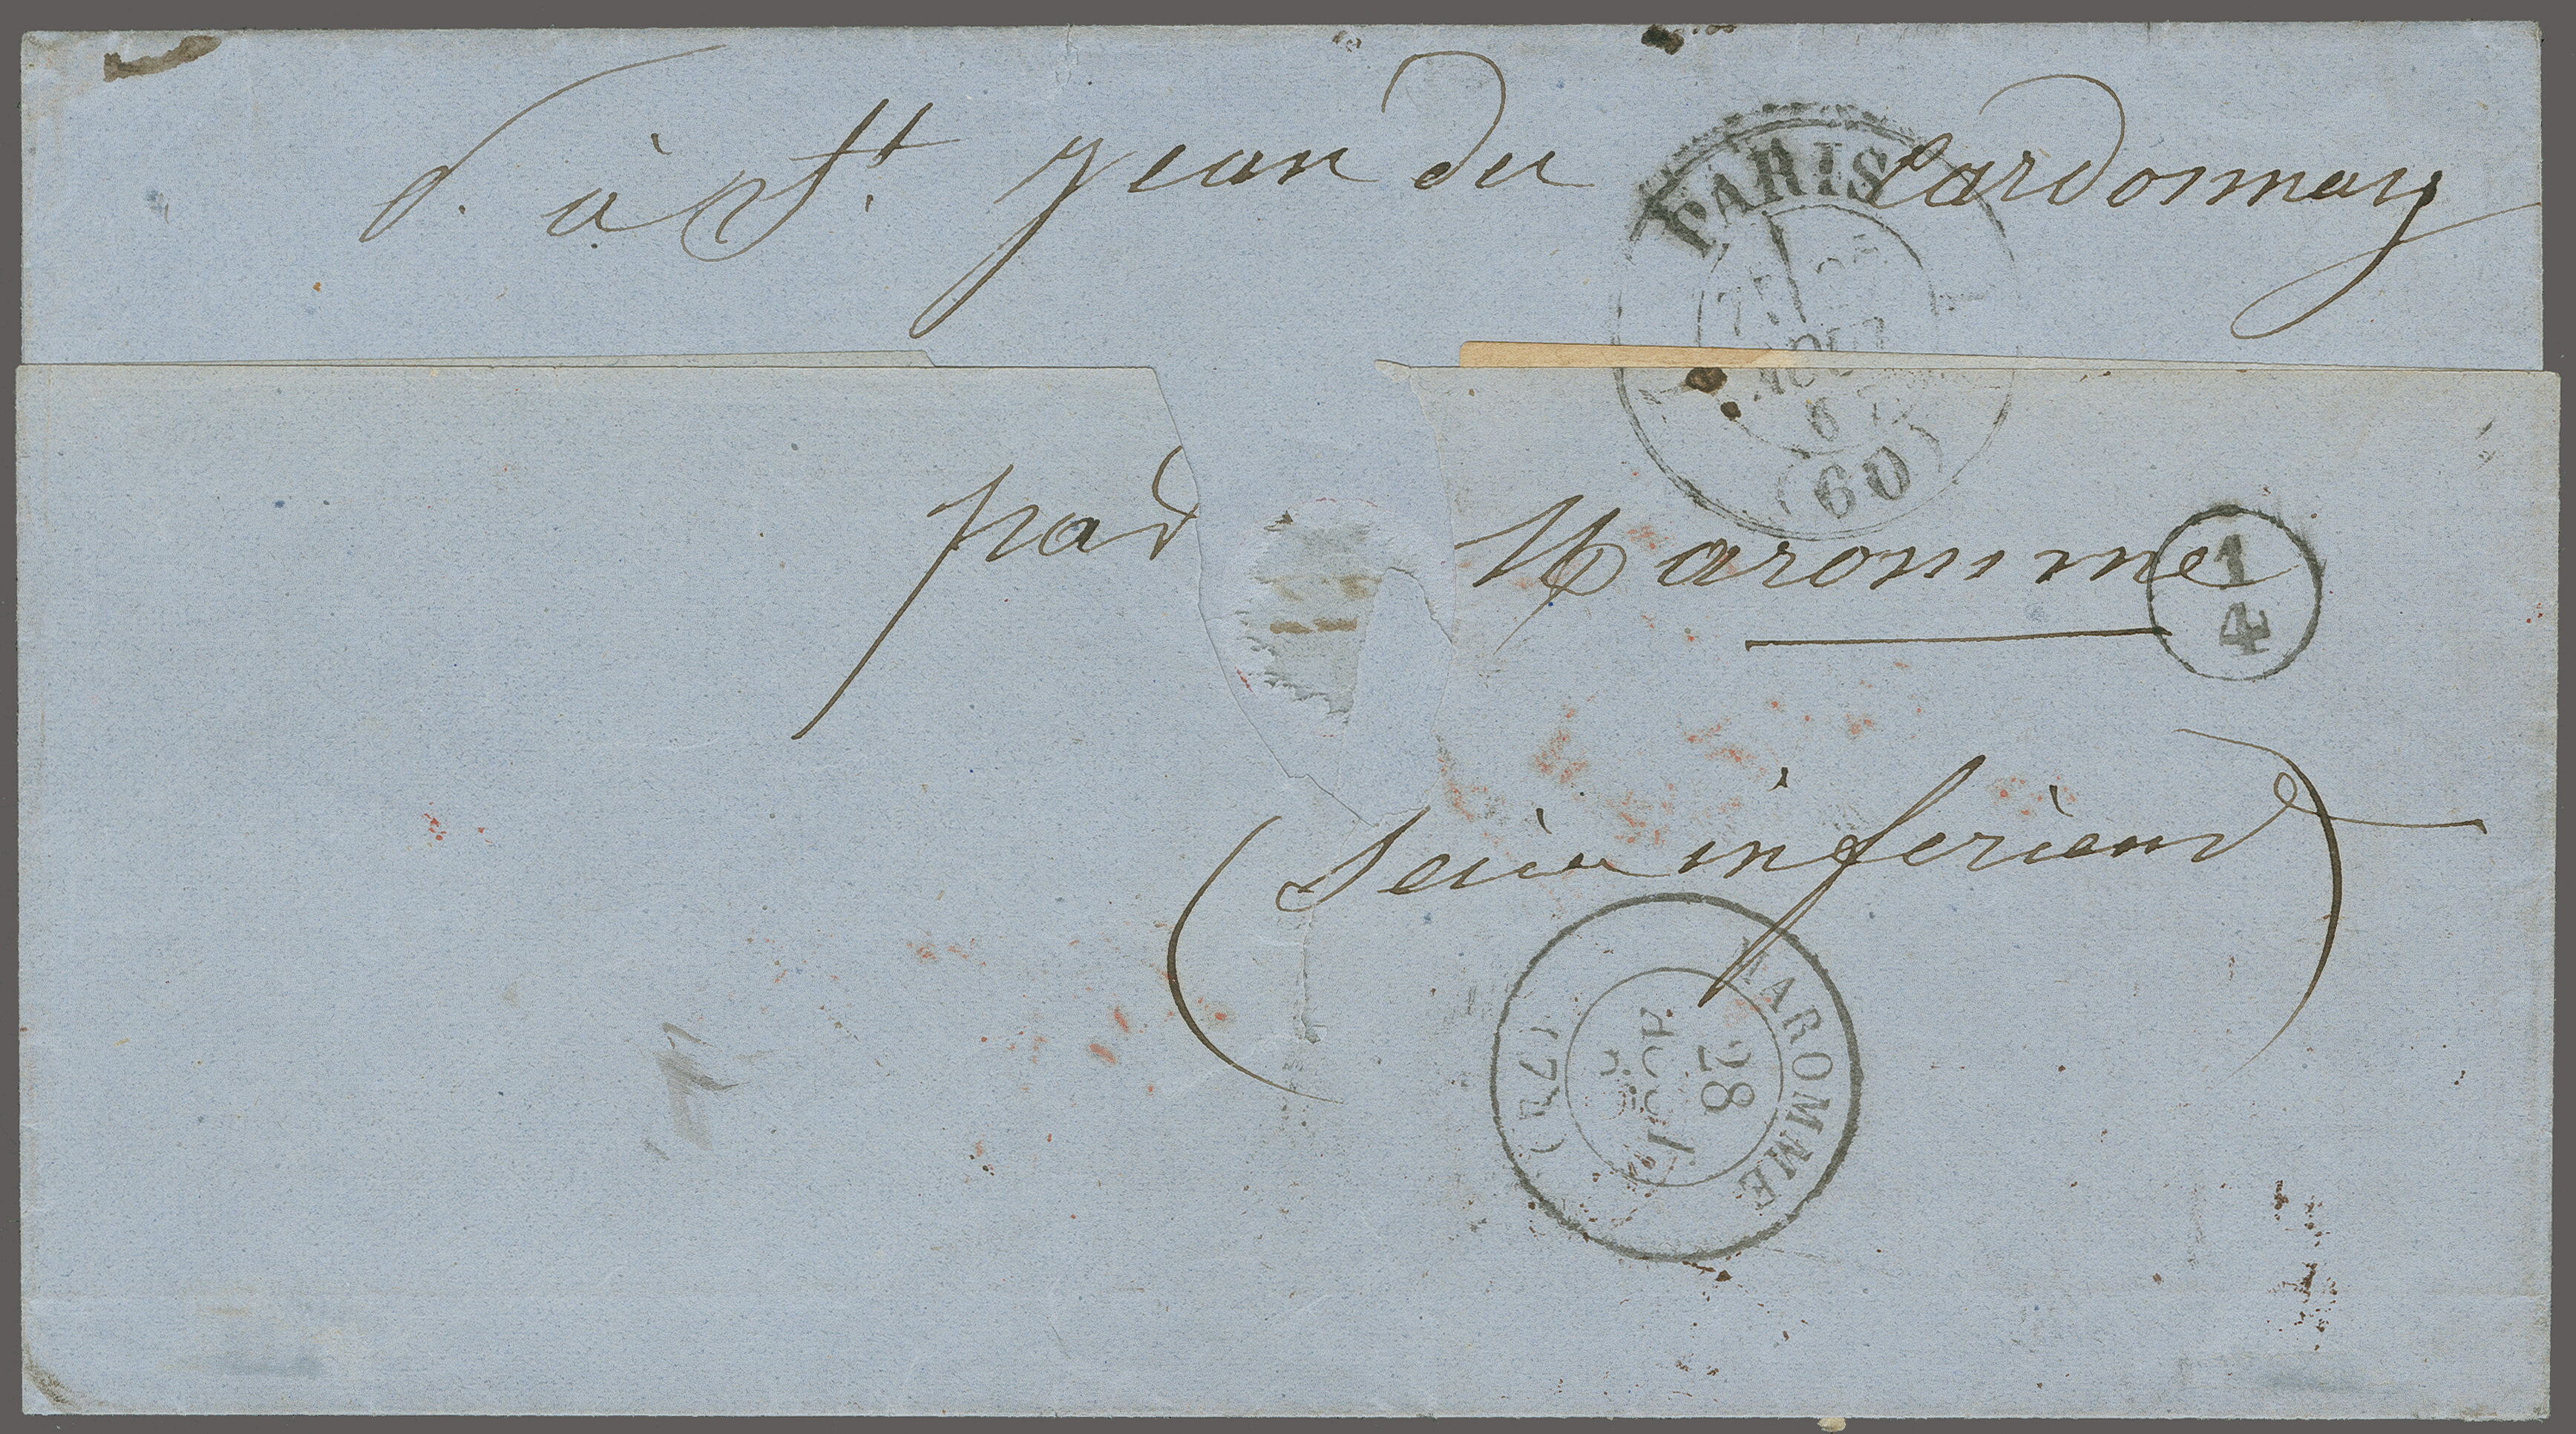 à St. Jean du Cardonnay
PARIS
AOUT
67
(60)
par Maromme
1
4
(Seine inferieur)
MAROMME
28
AOUT
(74)